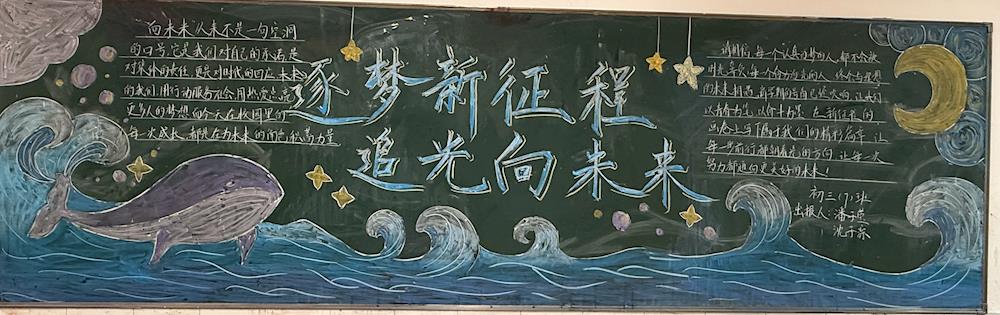 "向未来"从来不是一句空洞
的口号,它是我们对自己的承诺,是
对集体的责任,更是对时代的回应。未来
的我们,用行动服务社会,用热爱点亮
更多人的梦想,而今天在校园里的
每一次成长,都是在为未来的闪亮积蓄力量
逐梦新征程
追光向未来
请相信,每一个认真的人,都不会被
时光辜负,每一个努力的人,终会与理想
的未来相遇。新学期的
以青春为笔,以奋斗为墨,在新征程的
画卷上写下属于我们的精彩篇章,让
每一步前行都朝着光的方向,让每一次
努力都通向更美好的未来!
初三(7)班
出报人:潘子
沈子